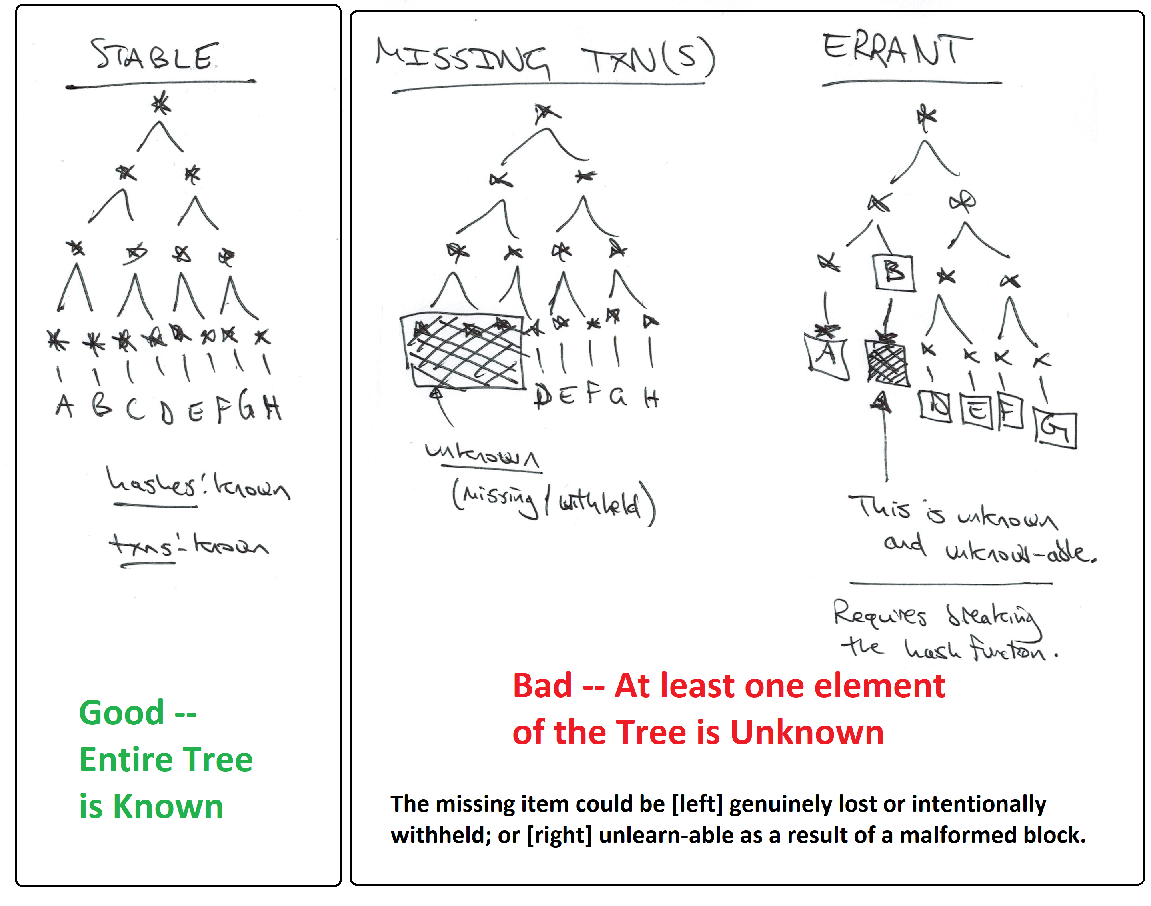 STABLE
A B C D E F G H
hashes: known
txns: known
Good --
Entire Tree
is Known
MISSING TXN(S)
D E F G H
unknown
(missing / withheld)
ERRANT
B
A
D E F G
This is unknown
and unknow-able.
Requires breaking
the hash function.
Bad -- At least one element
of the Tree is Unknown
The missing item could be [left] genuinely lost or intentionally
withheld; or [right] unlearn-able as a result of a malformed block.